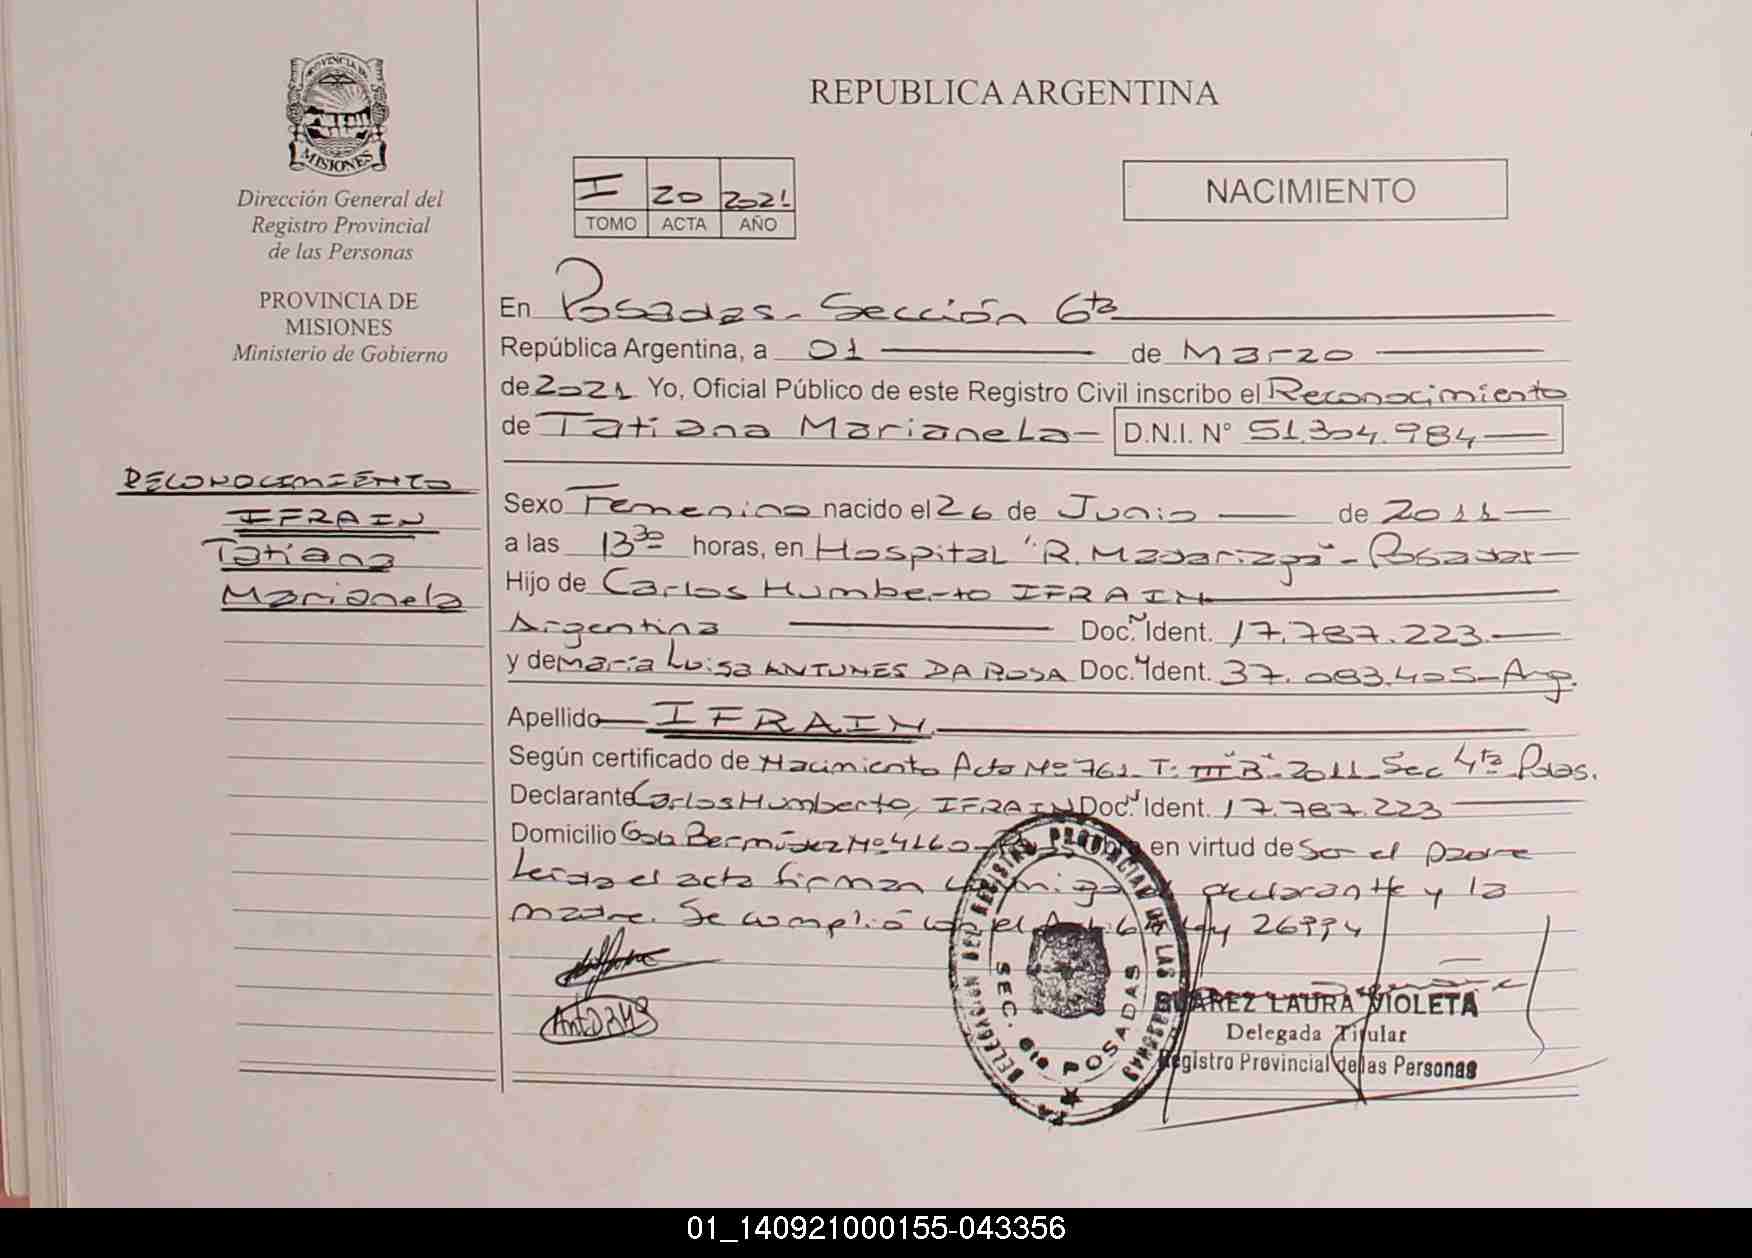 PROVINCIA DE
MISIONES
Dirección General del
Registro Provincial
de las Personas
PROVINCIA DE
MISIONES
Ministerio de Gobierno
RECONOCIMIENTO
IFRAIN
Tatiana
Marianela
REPUBLICA ARGENTINA
I 20 2021
TOMO ACTA AÑO
NACIMIENTO
En Posadas - Sección 6ta
República Argentina, a 01 de Marzo
de 2021 Yo, Oficial Público de este Registro Civil inscribo el Reconocimiento
de Tatiana Marianela - D.N.I. N° 51.304.984
Sexo Femenino nacido el 26 de Junio de 2011
a las 13 30 horas, en Hospital "R. Madariaga" - Posadas
Hijo de Carlos Humberto IFRAIN
Argentina Doc. Ident. 17.787.223.
y de María Luisa ANTUNES DA ROSA Doc. Ident. 37.083.405 - Arg.
Apellido IFRAIN
Según certificado de Nacimiento Acta Nº 761 T. III "B" - 2011 - Sec 4ta Pdas.
Declarante Carlos Humberto IFRAIN Doc. Ident. 17.787.223
Domicilio Bermúdez Nº 4160 - en virtud de Ser el padre
Leida el acta firman declarante y la
madre. Se complió con el 26994
LA DELEGACION DEL REGISTRO PROVINCIAL DE LAS PERSONAS
SEC. 6ta POSADAS
SUAREZ LAURA VIOLETA
Delegada Titular
Registro Provincial de las Personas
01_140921000155-043356